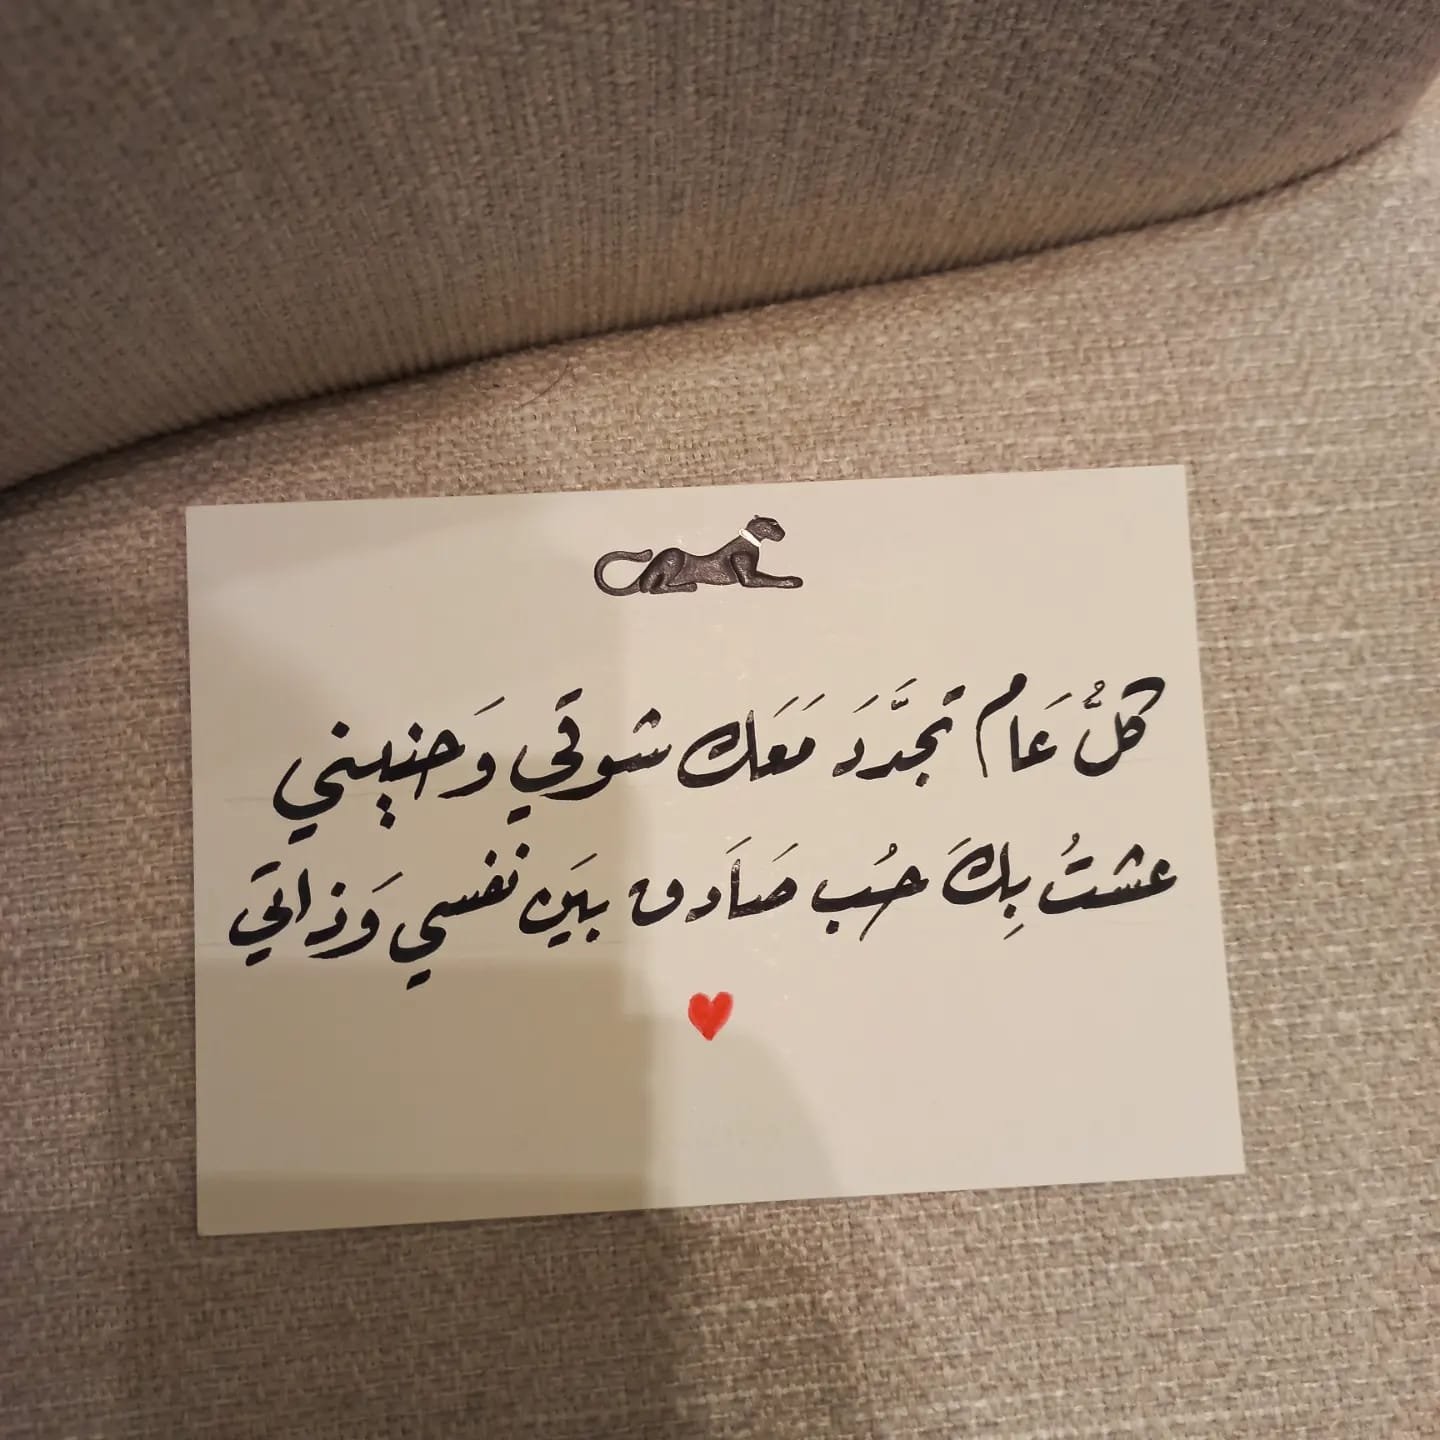 كلُّ عَام تجدَّدَ مَعَك شوقي وَحنيني
عشتُ بِكَ حُب صَادق بَين نفسي وَذاتي